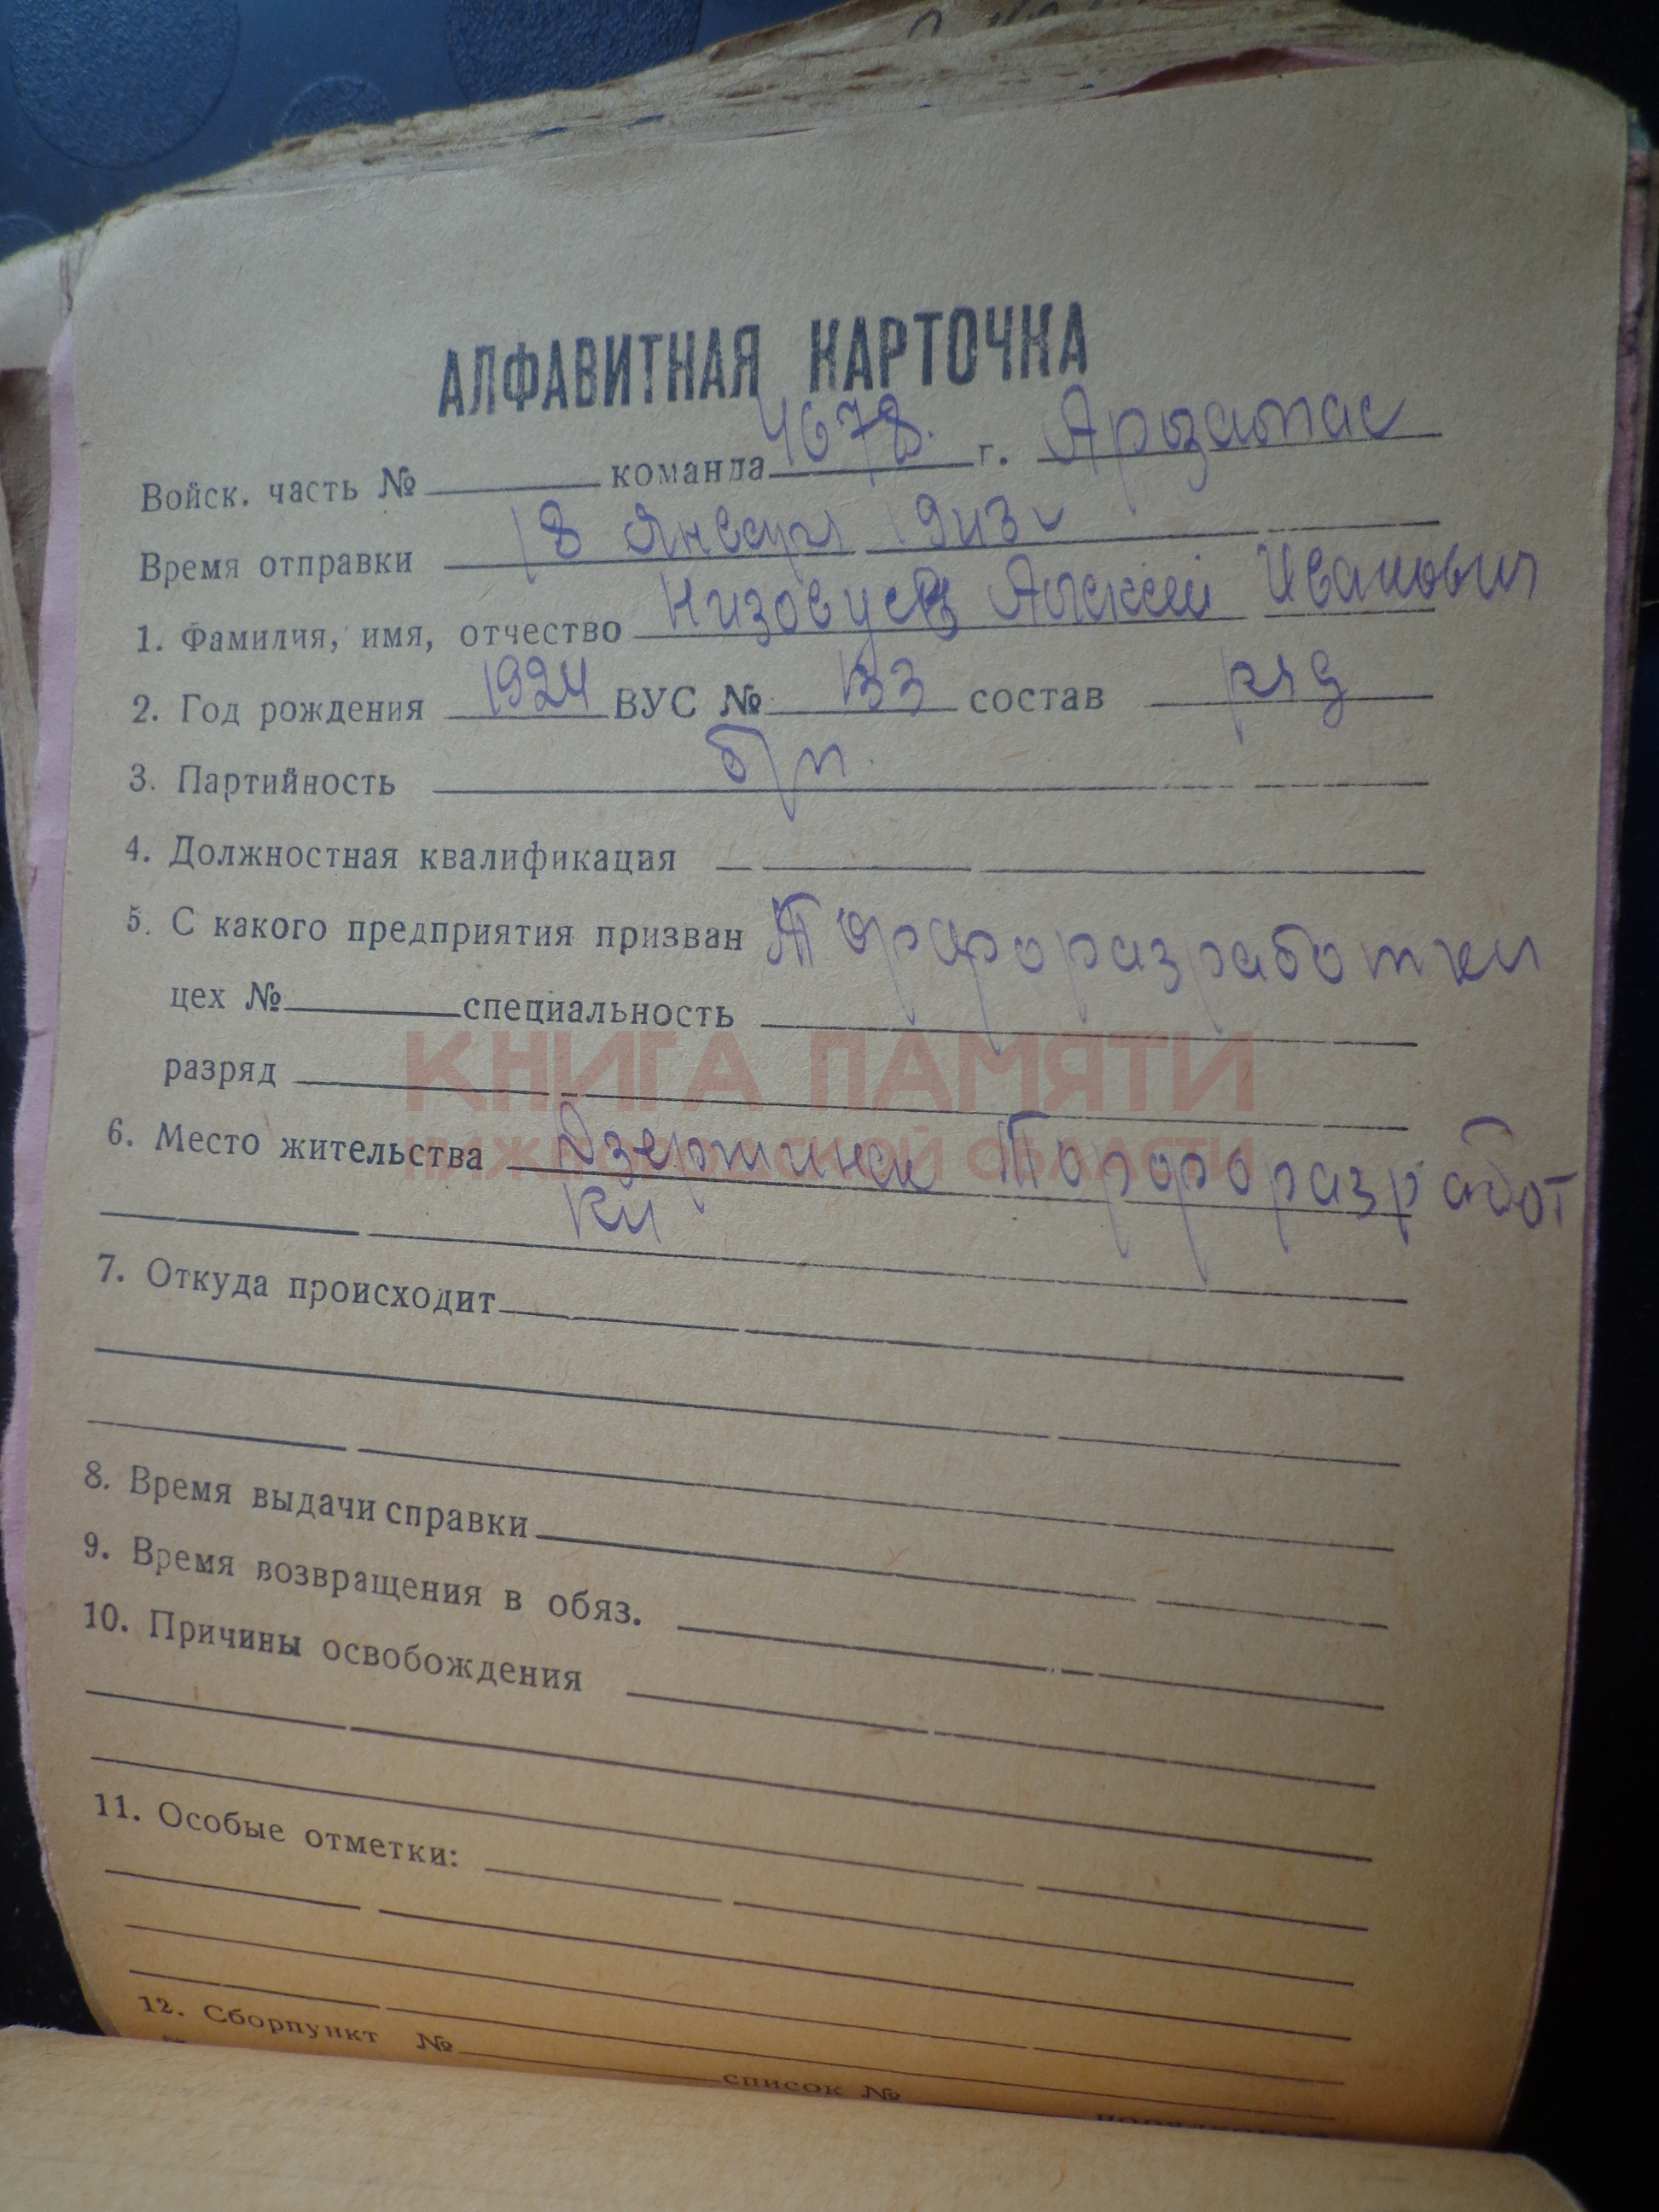 АЛФАВИТНАЯ КАРТОЧКА
Войск. часть № команда 4678. г. Арзамас
Время отправки 18 Января 1943
1. Фамилия, имя, отчество Алексей Иванович
2. Год рождения 1924 ВУС № 133 состав ряд
3. Партийность б/п.
4. Должностная квалификация
5. С какого предприятия призван Торфоразработки
цех № специальность
разряд
КНИГА ПАМЯТИ
6. Место жительства Дзержинск Торфоразработ
НИЖЕГОРОДСКОЙ ОБЛАСТИ
ки
7. Откуда происходит
8. Время выдачи справки
9. Время возвращения в обяз.
10. Причины освобождения
11. Особые отметки:
12. Сборпункт №
список №